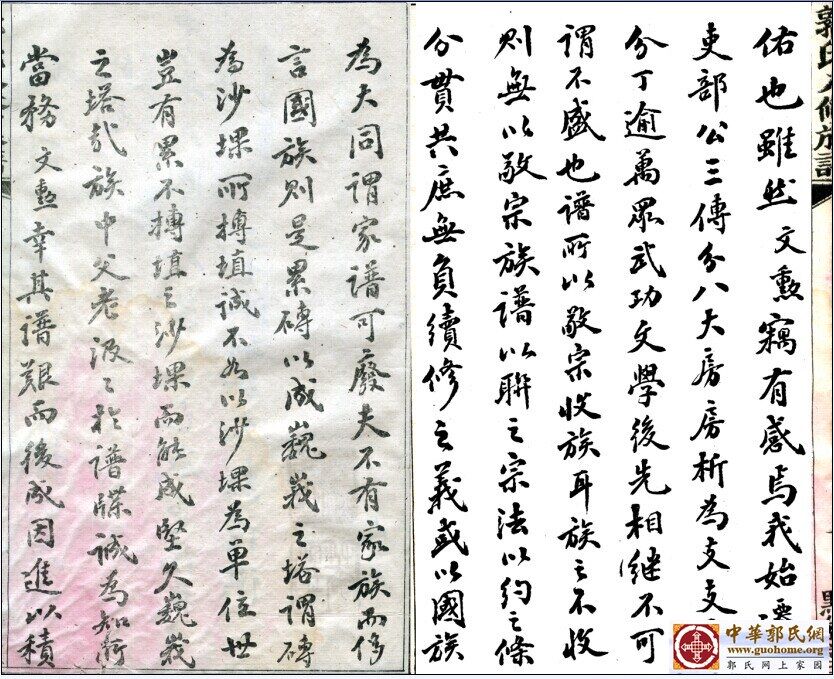 郭氏八修族譜
佑也雖然文勳竊有感焉我始遷
吏部公三傳分八大房房析為支支
分丁逾萬眾武功文學後先相繼不可
謂不盛也譜所以敬宗收族耳族之不收
則無以敬宗族譜以聯之宗法以約之條
分貫共庶無負續修之義或以國族
為大同謂家譜可廢夫不有家族而侈
言國族則是累磚以成巍峩之塔謂磚
為沙堁所摶埴誠不如以沙堁為單位世
豈有累不摶埴之沙堁而能成堅久巍峩
之塔哉族中父老汲〻於譜牒誠為知所
當務文勳幸其譜艱而後成因進以積
中華郭氏網
www.guohome.org
郭氏网上家园